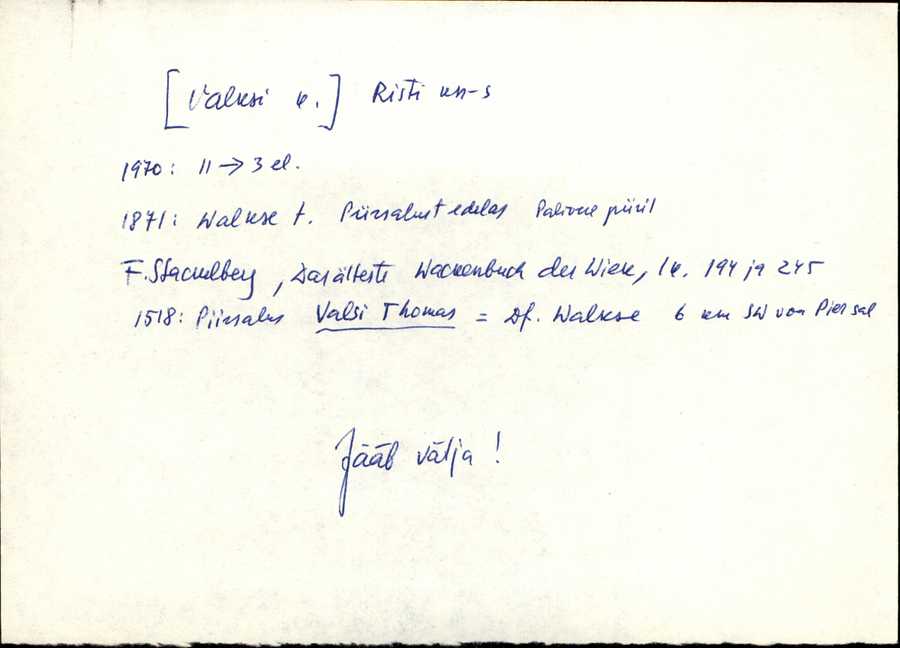 [Valksi k.] Risti kn-s
1970: 11 → 3 el.
1871: Walkse t. Piirsalust edelas Palivere piiril
F. Stackelberg, Das älteste Wackenbuch der Wiek, lk. 194 ja 245
1518: Piirsalus Valsi Thomas = Df. Walkse 6 km SW von Piersal
Jääb välja!